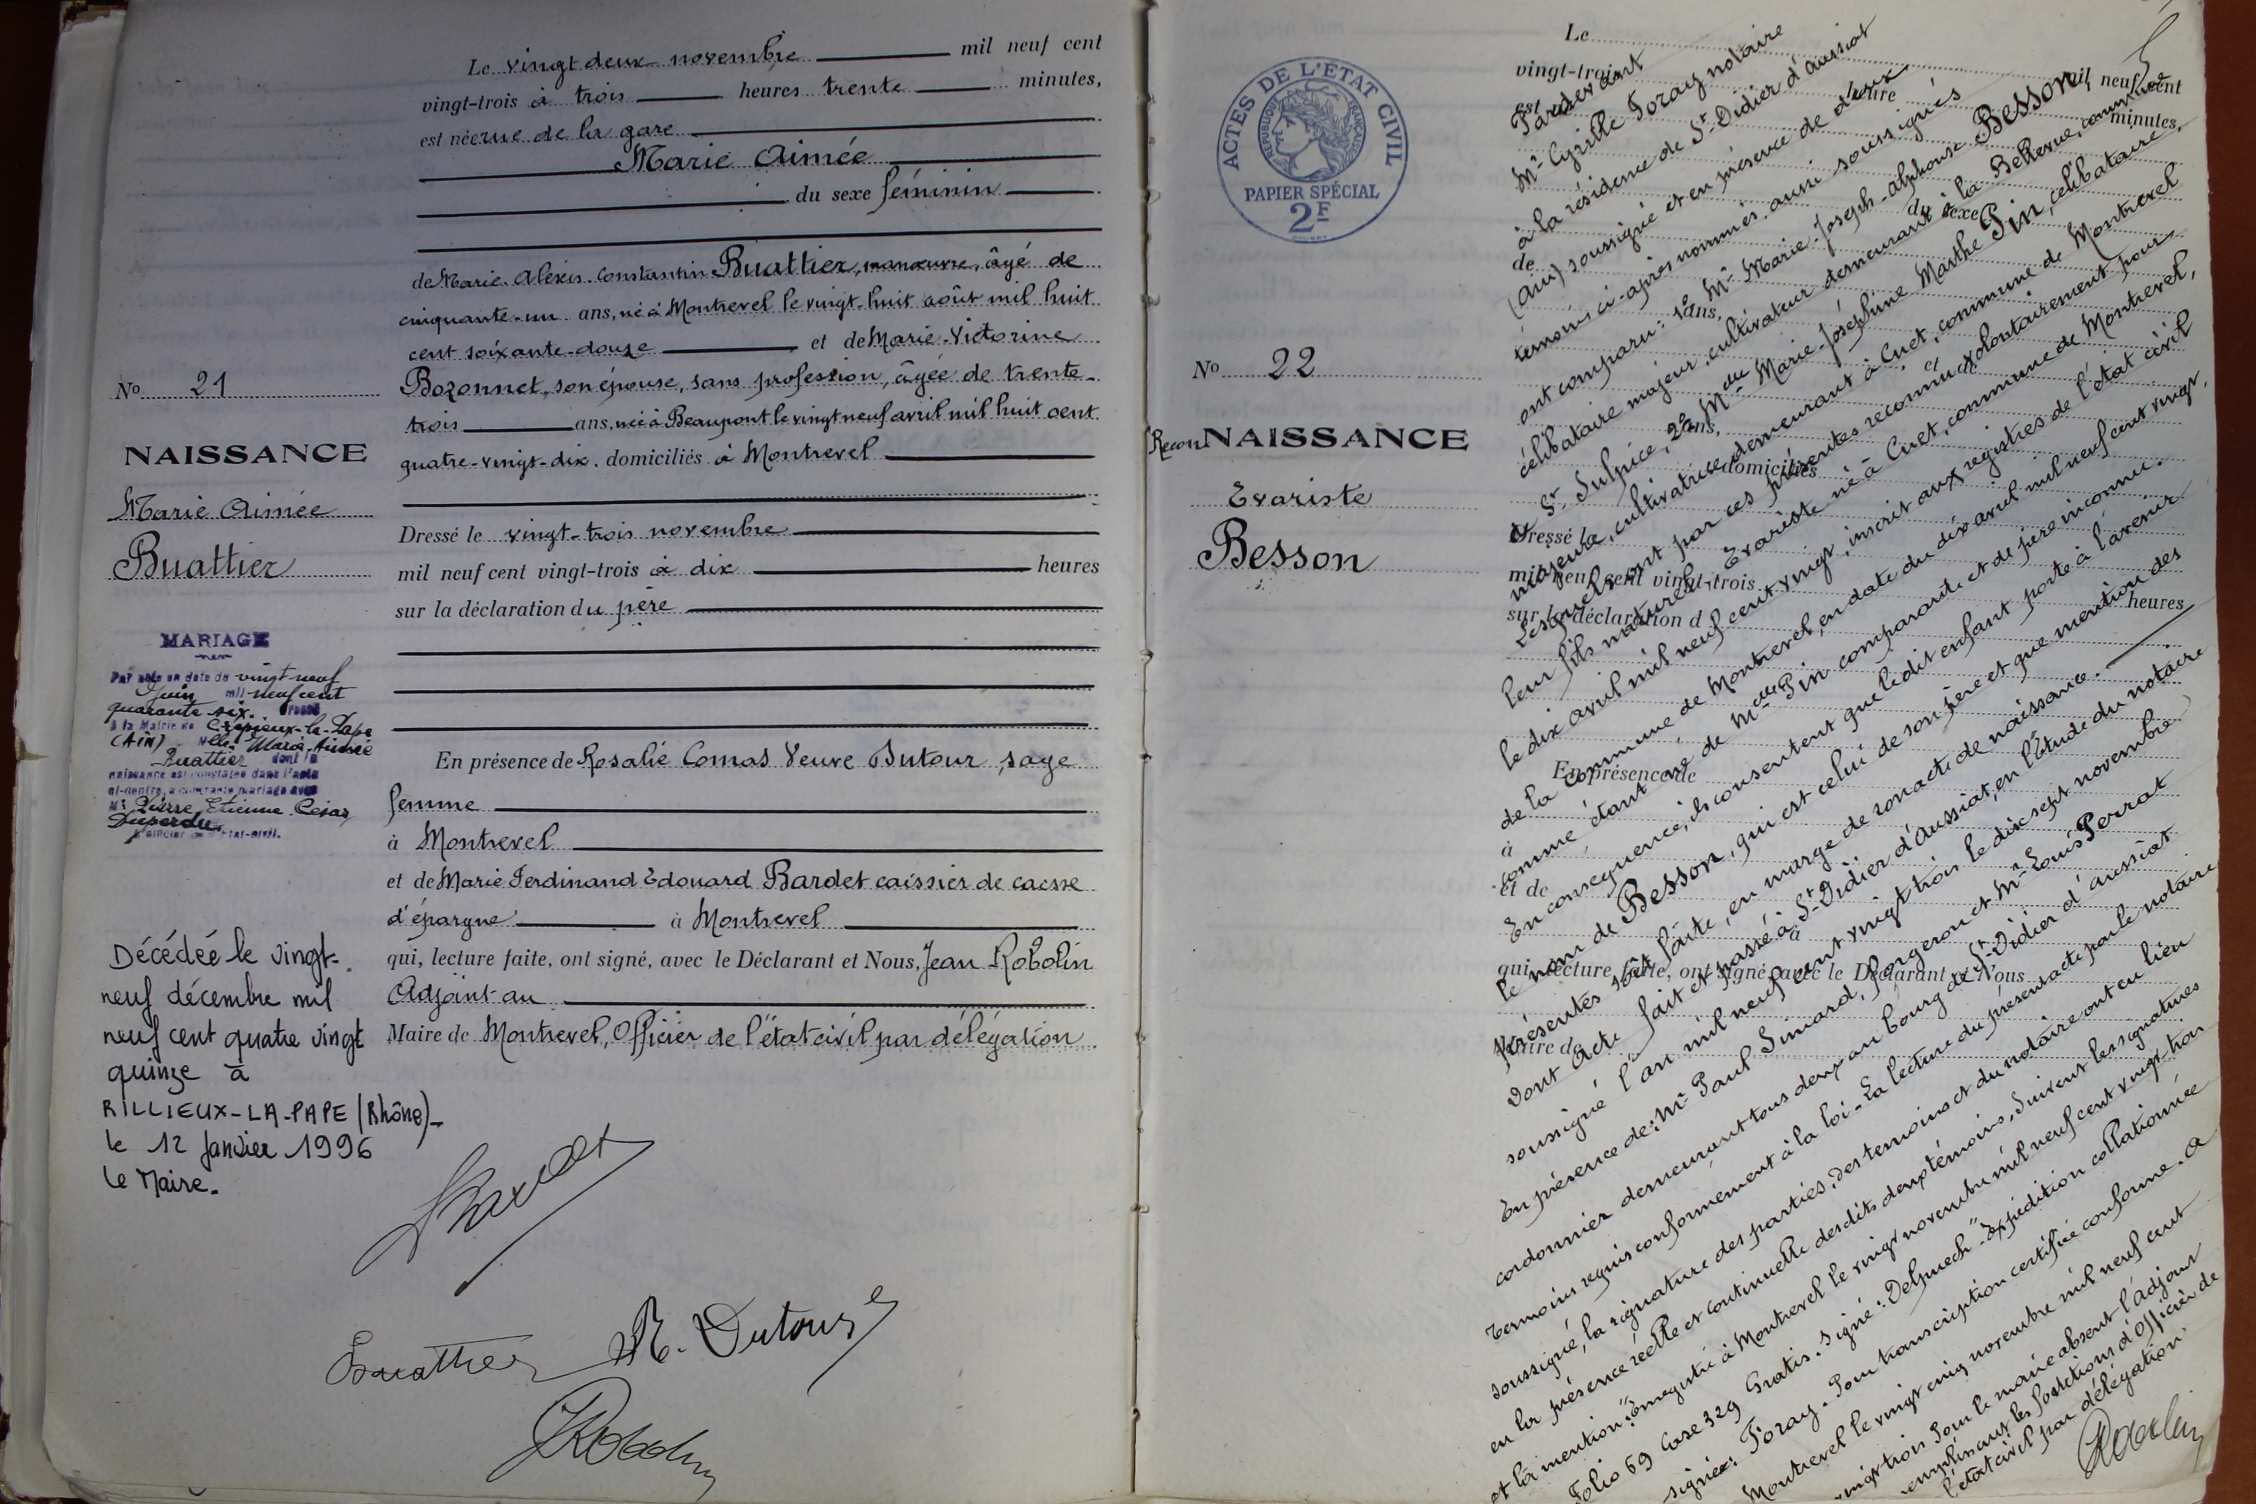 Le vingt deux novembre mil neuf cent
vingt-trois à trois heures trente minutes,
est née rue de la gare
Marie Aimée
du sexe féminin
de Marie Alexis Constantin Buattier, manœuvre, âgé de
cinquante-un ans, né à Montrevel le vingt-huit août mil huit
cent soixante-douze et de Marie-Victorine
Bozonnet, son épouse, sans profession, âgée de trente-
trois ans, née à Beaupont le vingt neuf avril mil huit cent
quatre-vingt-dix. domiciliés à Montrevel
Dressé le vingt-trois novembre
mil neuf cent vingt-trois à dix heures
sur la déclaration du père
En présence de Rosalie Comas Veuve Dutour, sage
femme
à Montrevel
et de Marie Ferdinand Edouard Bardet caissier de caisse
d'épargne à Montrevel
qui, lecture faite, ont signé, avec le Déclarant et Nous, Jean Robolin
Adjoint au
Maire de Montrevel, Officier de l'état civil par délégation
Bardet
Buattier R. Dutour
JRobolin
No 21
NAISSANCE
Marie Aimée
Buattier
MARIAGE
Par acte en date du vingt neuf
Juin mil neuf cent
quarante six. dressé
à la Mairie de Crépieux-la-Pape
(Ain) Mlle Marie-Aimée
Buattier dont la
naissance est constatée dans l'acte
ci-contre, a contracté mariage avec
Mr Pierre Etienne César
Duperdu.
L'officier de l'Etat-civil.
Décédée le vingt-
neuf décembre mil
neuf cent quatre vingt
quinze à
RILLIEUX-LA-PAPE (Rhône)-
le 12 Janvier 1996
Le Maire.
ACTES DE L'ÉTAT CIVIL
RÉPUBLIQUE FRANÇAISE
PAPIER SPÉCIAL
2F
No 22
Recon NAISSANCE
Evariste
Besson
Le mil neuf cent
vingt-trois heure minutes,
est
du sexe
de
ans,
et de
ans, domiciliés
Dressé le
mil neuf cent vingt-trois heures
sur la déclaration d
En présence de
à
et de
à
qui, lecture faite, ont signé, avec le Déclarant et Nous
Maire de
Par devant
Me Cyrille Foray notaire
à la résidence de St Didier d'Aussiat
(Ain) soussigné et en présence de deux
témoins ci-après nommés, aussi soussignés
ont comparu: 1° Mr Marie-Joseph-Alphonse Besson,
célibataire majeur, cultivateur demeurant à la Bellevue, commune
de St Sulpice, 2° Melle Marie-Joséphine Marthe Pin, célibataire
majeure, cultivatrice, demeurant à Cuet, commune de Montrevel
Lesquels ont par ces présentes reconnu volontairement pour
leur fils naturel, Evariste né à Cuet, commune de Montrevel,
le dix avril mil neuf cent vingt, inscrit aux registres de l'état civil
de la commune de Montrevel, en date du dix avril mil neuf cent vingt,
comme étant né de Melle Pin comparante et de père inconnu.
En conséquence, ils consentent que ledit enfant porte à l'avenir
le nom de Besson, qui est celui de son père et que mention des
présentes soit faite, en marge de son acte de naissance.
Dont Acte fait et passé à St-Didier d'Aussiat, en l'étude du notaire
soussigné l'an mil neuf cent vingt trois le dix sept novembre
En présence de: Mr Paul Simard, forgeron et Mr Louis Perrat
cordonnier demeurant tous deux au bourg de St-Didier d'Aussiat
témoins requis conformément à la loi. La lecture du présent acte par le notaire
soussigné, la signature des parties, des témoins et du notaire ont eu lieu
en la présence réelle et continuelle desdits deux témoins. Suivent les signatures
et la mention: "Enregistré à Montrevel le vingt novembre mil neuf cent vingt-trois
Folio 69 Case 329 Gratis. Signé: Delpuech" Expédition collationnée
signée: Foray. Pour transcription certifiée conforme. A
Montrevel le vingt cinq novembre mil neuf cent
vingt trois Pour le maire absent l'adjoint
remplissant les fonctions d'Officier de
l'état civil par délégation.
JRobolin